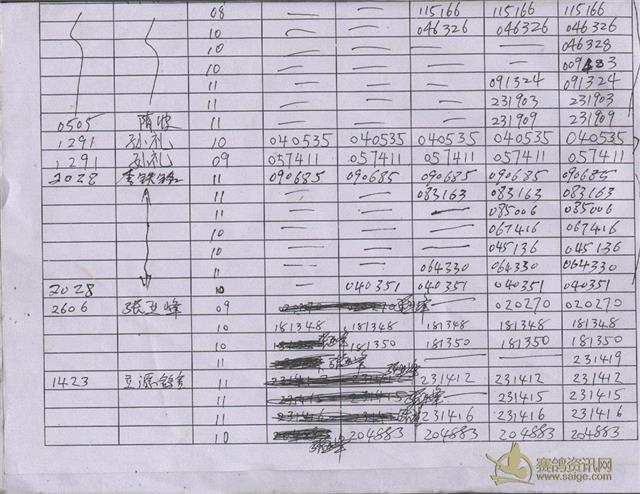 08 — — 115166 115166 115166
10 — — 046326 046326 046326
10 — — — — 046328
10 — — — —
11 — — — 091324 091324
11 — — — 231903 231903
0505 11 — — — 231909 231909
1291 孙礼 10 040535 040535 040535 040535 040535
1291 孙礼 09 057411 057411 057411 057411 057411
2028 11 090685 090685 090685 090685 090685
11 — — 083163 083163 083163
11 — — — 085006 085006
10 — — — 067416 067416
10 — — — 045136 045136
11 — — 064330 064330 064330
2028 10 — 040351 040351 040351 040351
2606 09 — 020270 020270
10 181348 181348 181348 181348 181348
10 181350 181350 181350 181350
11 — — 231419
1423 11 231412 231412 231412 231412 231412
11 231415 231415 — 231415 231415
11 231416 231416 231416 231416
10 204883 204883 204883 204883 204883
赛鸽资讯网
www.saige.com